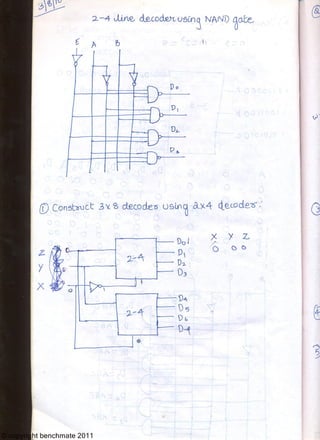 3/8/10
2-4 line decoder using NAND gate
E A B
D0
D1
D2
D3
① Construct 3x8 decoder using 2x4 decoder:
X Y Z
0 0 0
Z 0
Y 0
X 0
2-4
D0 1
D1
D2
D3
1
2-4
D4
D5
D6
D7
0
copyright benchmate 2011